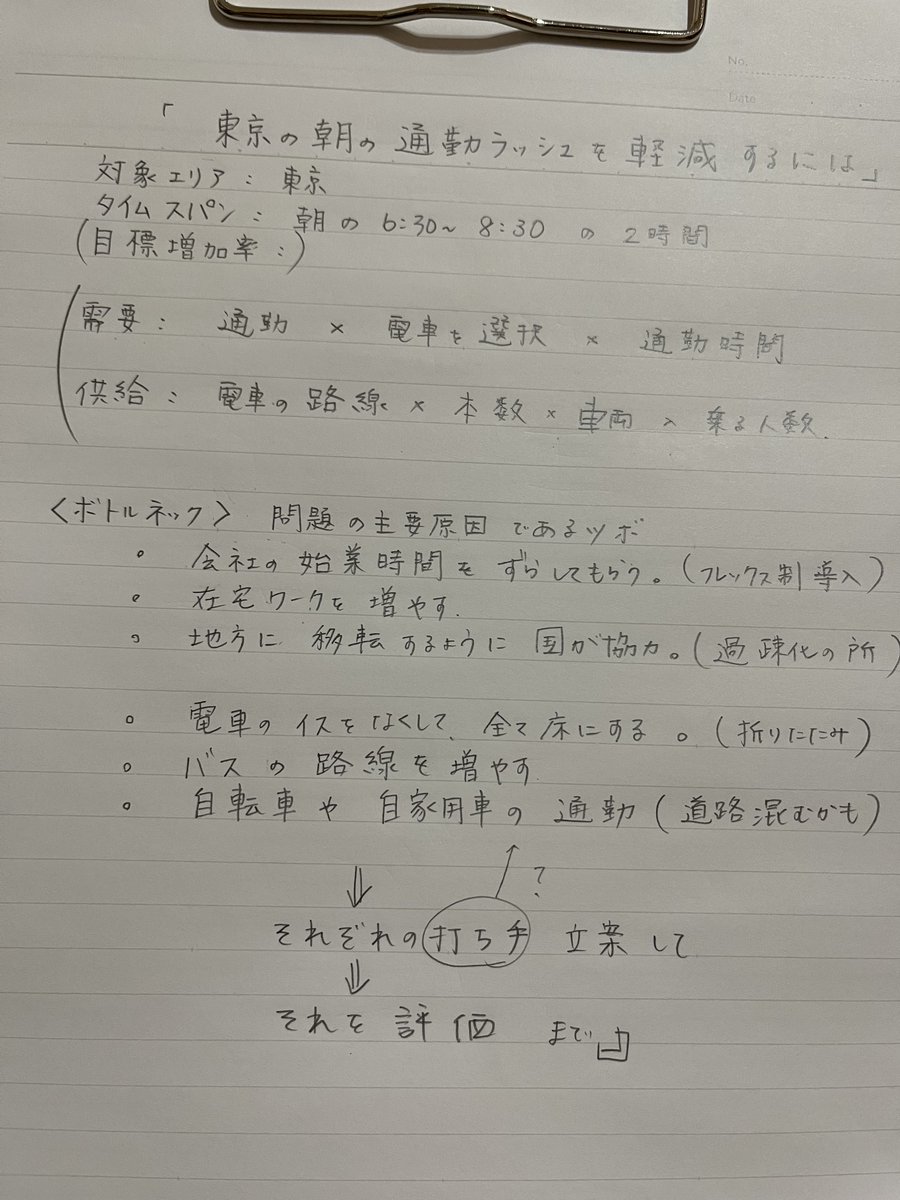 No.
Date
「東京の朝の通勤ラッシュを軽減するには」
対象エリア: 東京
タイムスパン: 朝の6:30~8:30の2時間
(目標増加率:)
需要: 通勤 × 電車を選択 × 通勤時間
供給: 電車の路線 × 本数 × 車両 × 乗る人数.
<ボトルネック> 問題の主要原因であるツボ
。会社の始業時間をずらしてもらう。(フレックス制導入)
。在宅ワークを増やす.
。地方に移転するように国が協力。(過疎化の所)
。電車のイスをなくして、全て床にする。(折りたたみ)
。バスの路線を増やす.
。自転車や自家用車の通勤(道路混むかも)
?
⇓
それぞれの打ち手立案して
⇓
それを評価まで